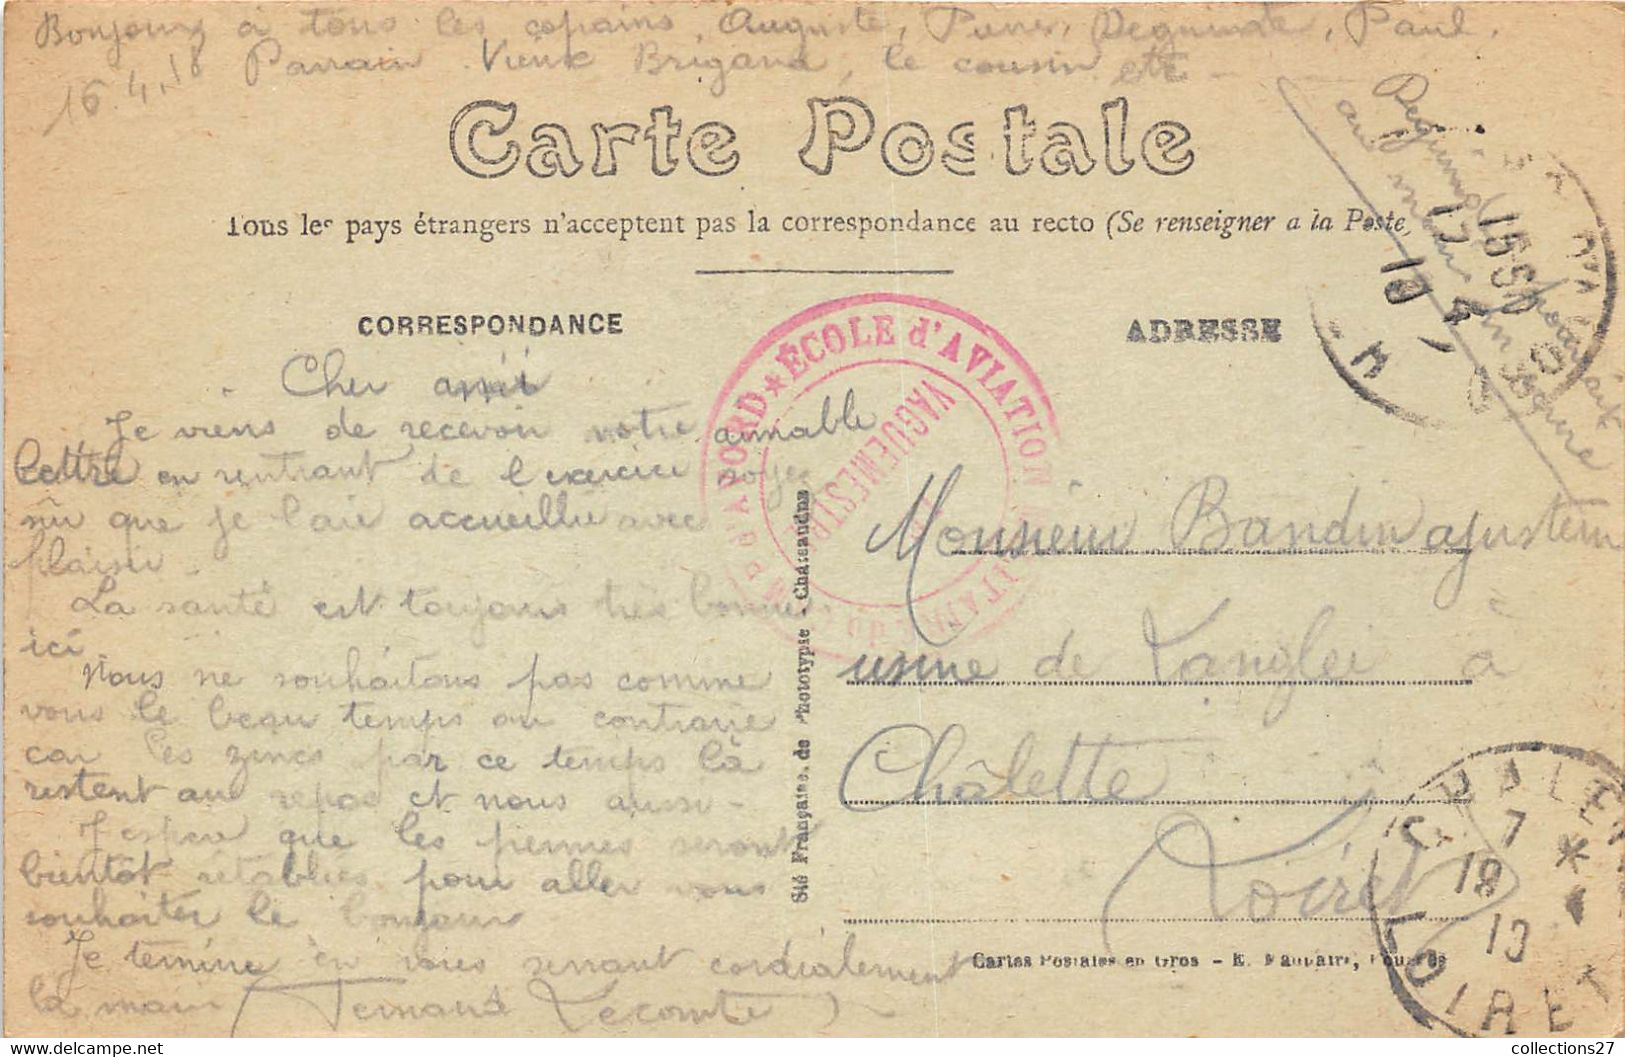 Bonjour à tous les copains, Auguste, Pierre, Paul,
16.4.18 Parrain Vieux Brigand, le cousin etc
Carte Postale
Tous les pays étrangers n'acceptent pas la correspondance au recto (Se renseigner a la Poste)
CORRESPONDANCE
ADRESSE
ÉCOLE d'AVIATION MILITAIRE
VAGUEMESTRE
Cher ami
Je viens de recevoir votre aimable
lettre en rentrant de l'exercice soyez
sûr que je l'aie accueillie avec
plaisir
La santé est toujours très bonne
ici
Nous ne souhaitons pas comme
vous le beau temps au contraire
car les zincs par ce temps là
restent au repos et nous aussi -
J'espere que les permes seront
bientôt rétablies pour aller vous
souhaiter le bonjour
Je termine en vous serrant cordialement
la main Fernand Lecomte
Monsieur Baudin ajusteur
usine de Langlée à
Châlette
Loiret
Sté Française de Phototypie - Chateaudun
Cartes Postales en Gros - E.
LOIRET
7
18
collections27